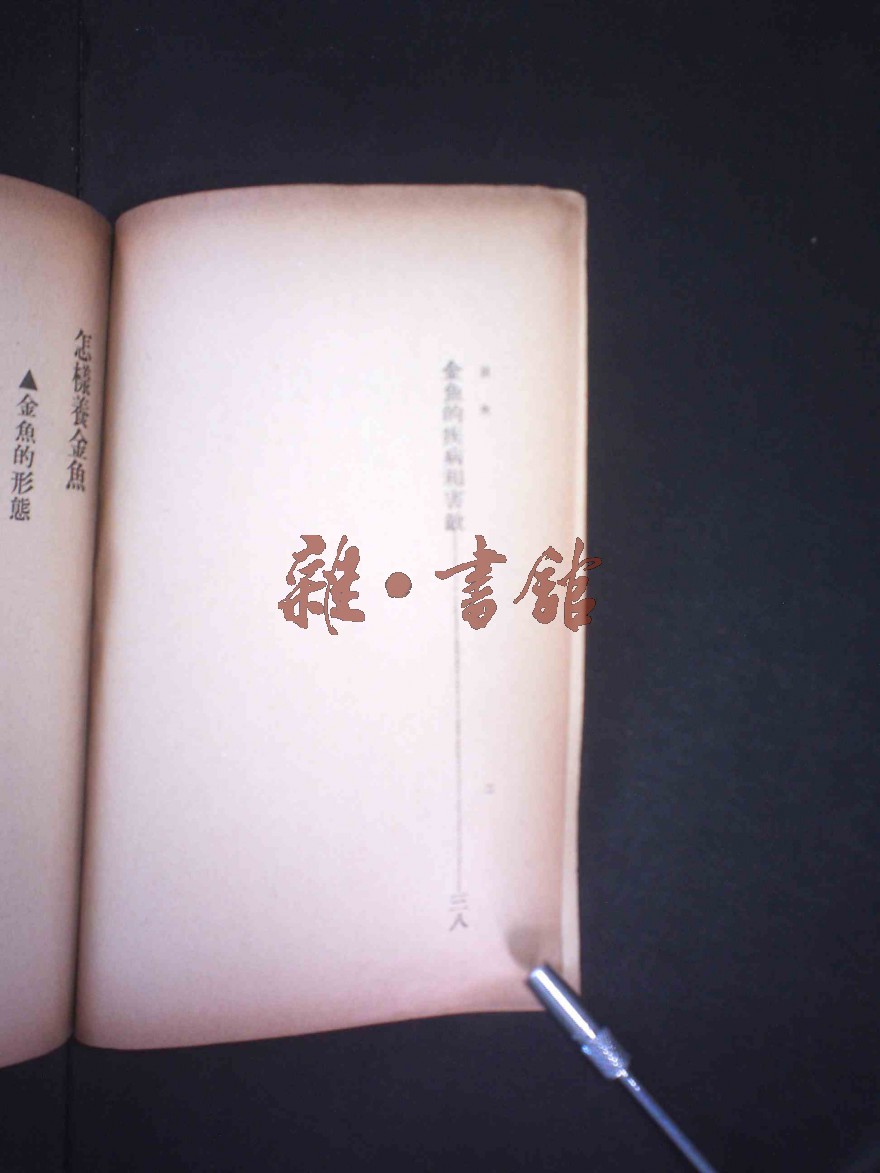 目次
金魚的疾病和害敵 三八
二
怎樣養金魚
▲金魚的形態
雜·書館